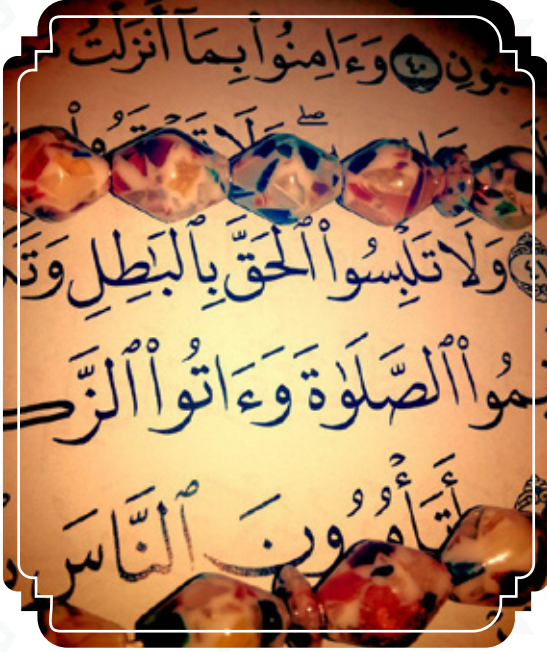 ـبُونِ ٤٠ وَءَامِنُوا۟ بِمَآ أَنزَلْتُ
٤١ وَلَا تَلْبِسُوا۟ ٱلْحَقَّ بِٱلْبَـٰطِلِ وَتَكـ
ـيمُوا۟ ٱلصَّلَوٰةَ وَءَاتُوا۟ ٱلزَّكـ
أَتَأْمُرُونَ ٱلنَّاسَ